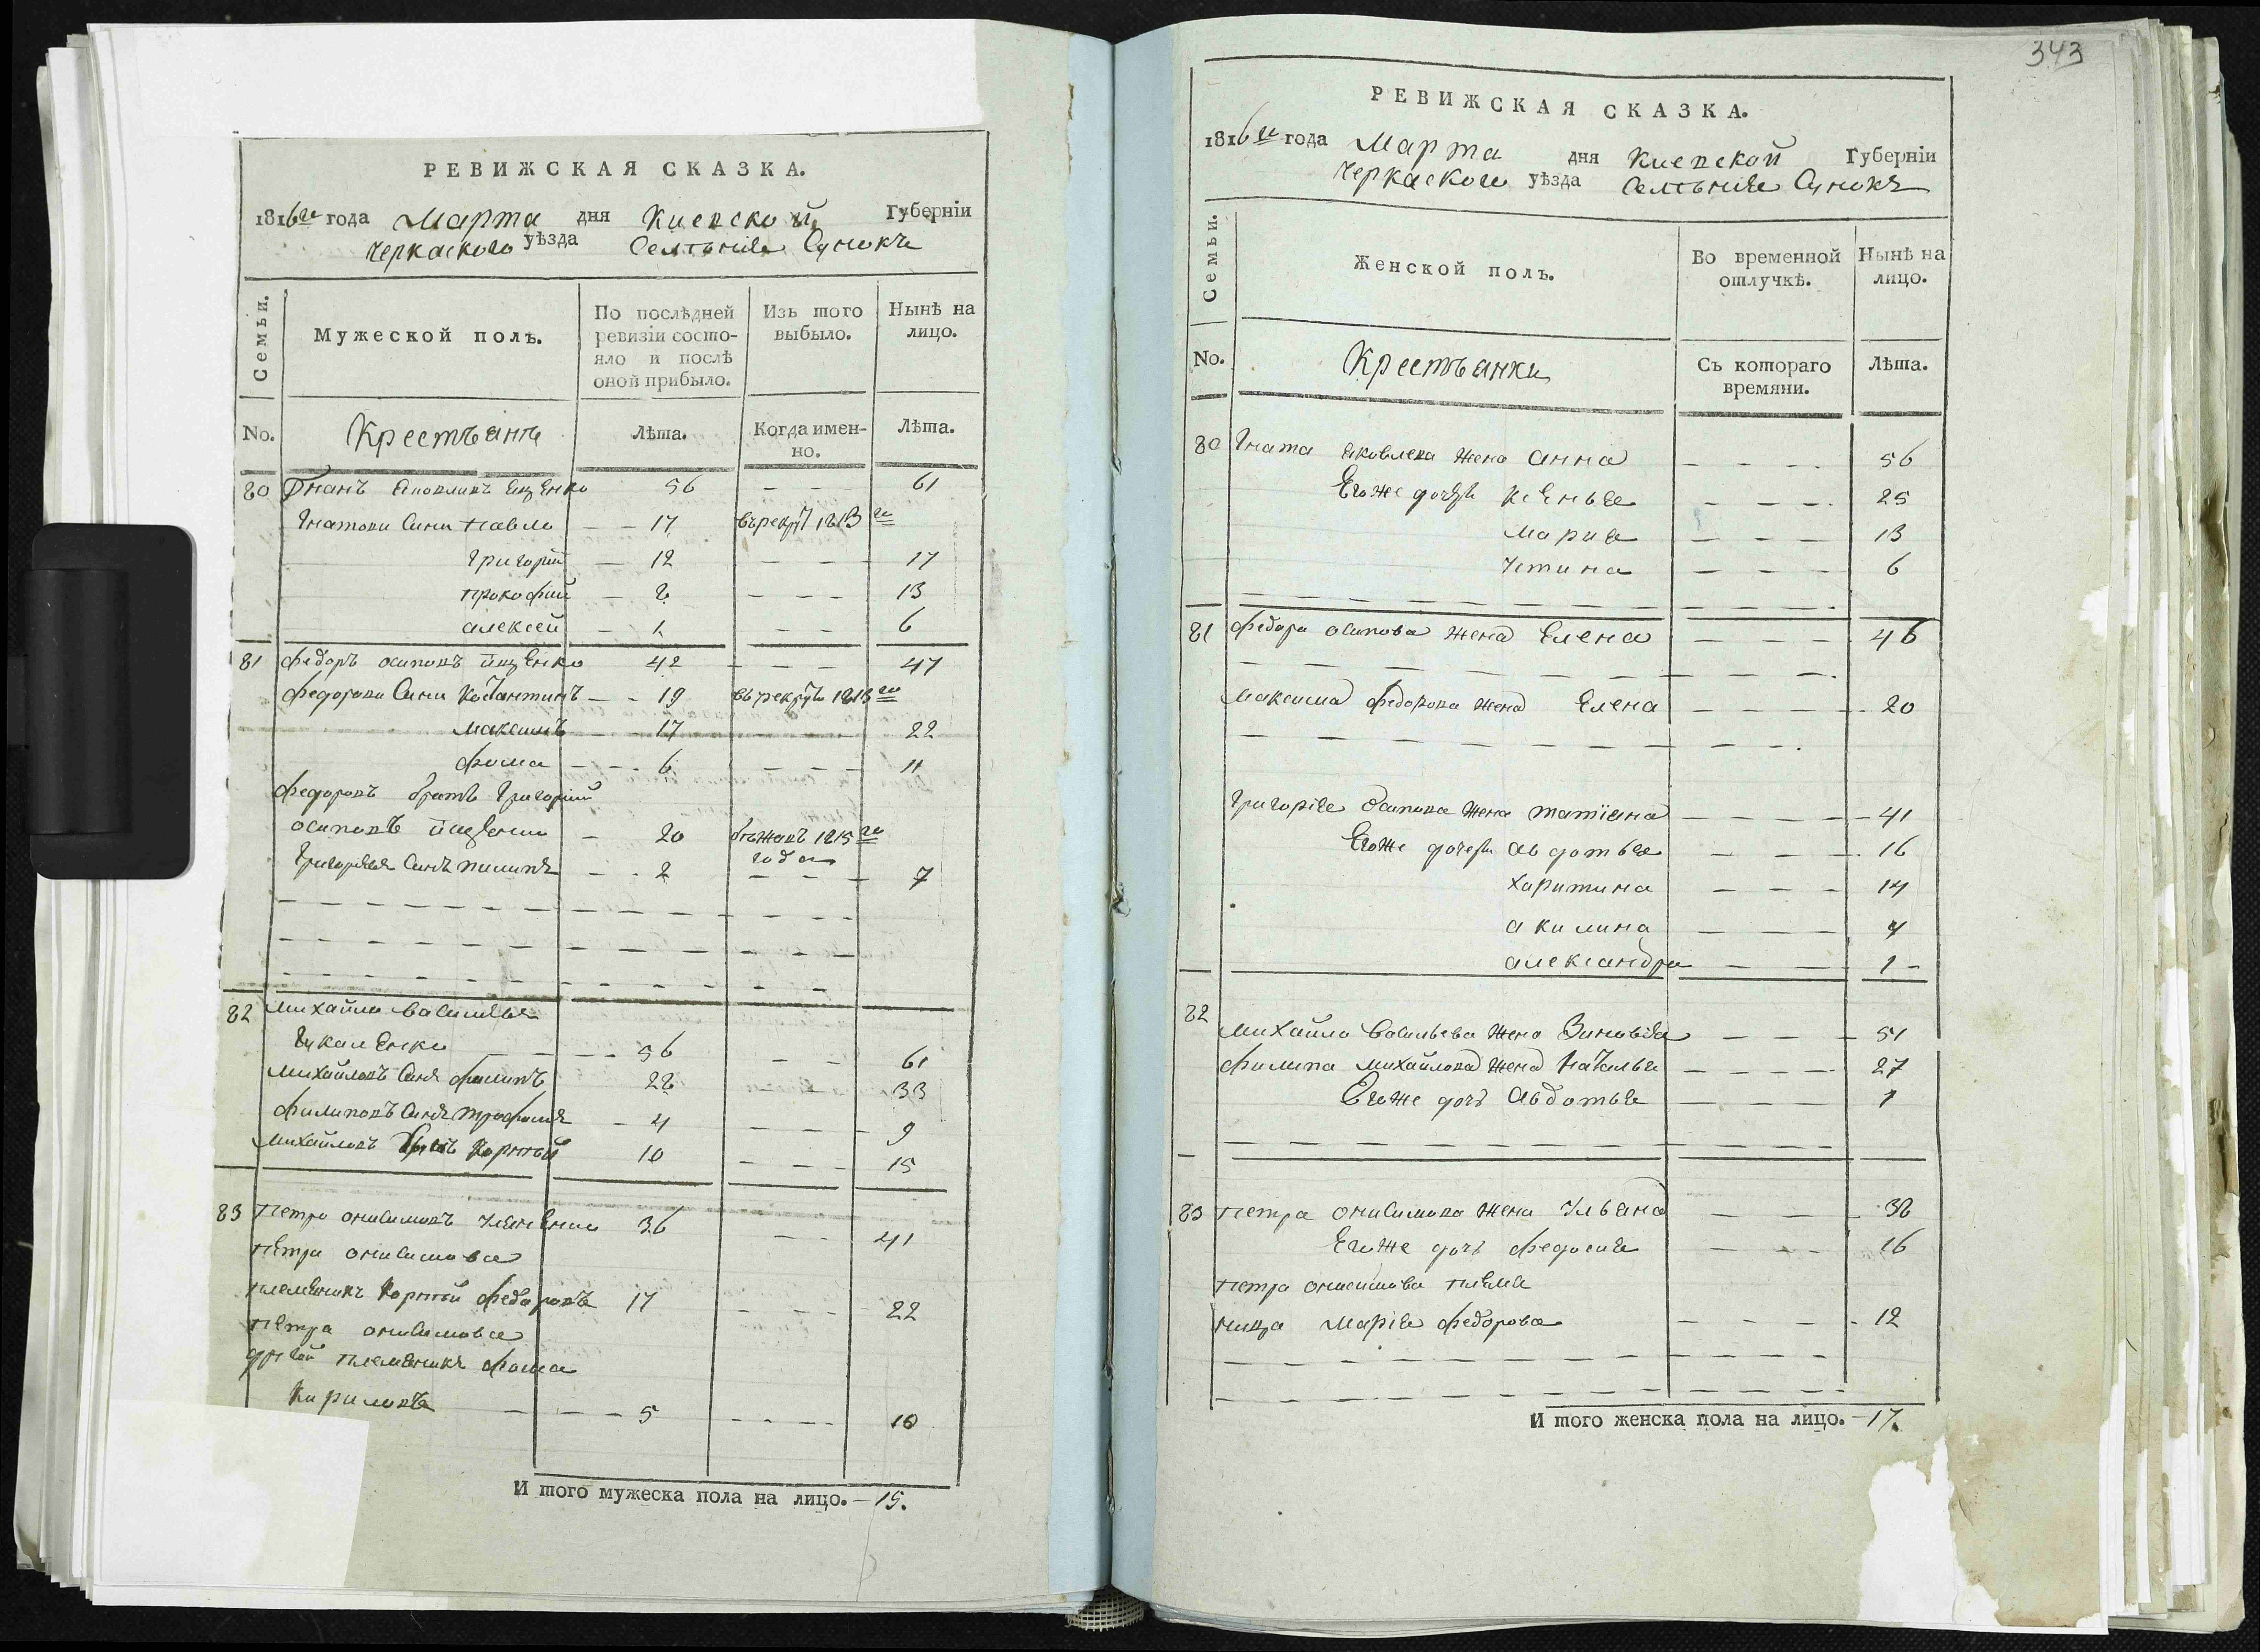 РЕВИЖСКАЯ СКАЗКА.
1816го года Марта дня Киевской Губерніи
Черкаского уѣзда Селѣнія Сунокъ
Семьи.
Мужеской полъ.
По послѣдней ревизіи состояло и послѣ оной прибыло.
Изъ того выбыло.
Нынѣ на лицо.
No.
Крестъяне
Лѣта.
Когда именно.
Лѣта.
80 Яковливъ 56 — — 61
Гнатови Сини Павло — — 17 въ рекру 1813го
Григорій — 12 — — — 17
Прокофий — 8 — — — 13
алексей — 1 — — 6
81 Федоръ осиповъ ищенко 42 — — — 47
Федорови Сини Костантинъ — — 19 въ рекру 1813го
Максимъ — — 17 — — — 22
Фома — — — 6 — — — 11
Федоровъ братъ Григорий
осиповъ ищенко — 20 бѣжавъ 1815го года
Григорьевъ Синъ пилипъ — — 2 — — — 7
82 Михайло василиевъ
— — — 56 — — 61
Михайловъ Синъ филипъ 28 — 33
Филиповъ Синъ трофимъ — 4 — — — 9
Михайловъ Корній 10 — — — 15
83 Петро онисимовъ 36 — — 41
Петра онисимова
племеникъ Корній Федоровъ 17 — — — 22
Петра онисимова
другой племеникъ Фома
Кириловъ — — — 5 — — — — 10
И того мужеска пола на лицо. — 15.
343
РЕВИЖСКАЯ СКАЗКА.
1816го года Марта дня Киевской Губерніи
Черкаского уѣзда Селѣнія Сунокъ
Семьи.
Женской полъ.
Во временной отлучкѣ.
Нынѣ на лицо.
No.
Крестьянки
Съ котораго времяни.
Лѣта.
80 Гната яковлева жена анна — — — — 56
Егоже дочери ксенья — — — — 25
мария — — — 13
Устина — — — 6
81 Федора осипова жена Елена — — — — 46
Максима Федорова жена Елена — — — — 20
Григорія Осипова жена татіяна — — — — 41
Егоже дочери авдотья — — — 16
харитина — — — 14
акилина — — — 4
александра — — 1 —
82
Михайла Васильева жена Зиновія — — — 51
Филипа михайлова жена Наталья — — — — 27
Егоже дочъ Авдотья — — — 1
83 Петра онисимова жена Ульяна — — — 38
Егоже дочъ Федосия — — — 16
Петра онисимова племе
ница Марія Федорова — — — — 12
И того женска пола на лицо. — 17.